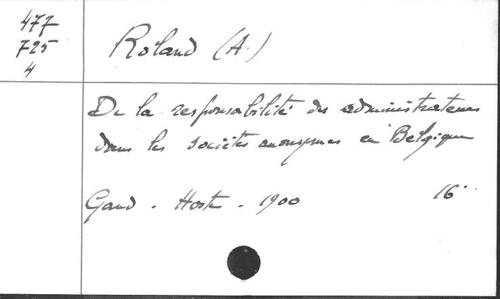 477
725
4
Roland (A.)
De la responsabilité des administrateurs
dans les sociétés anonymes en Belgique
Gand - Hoste - 1900 16°